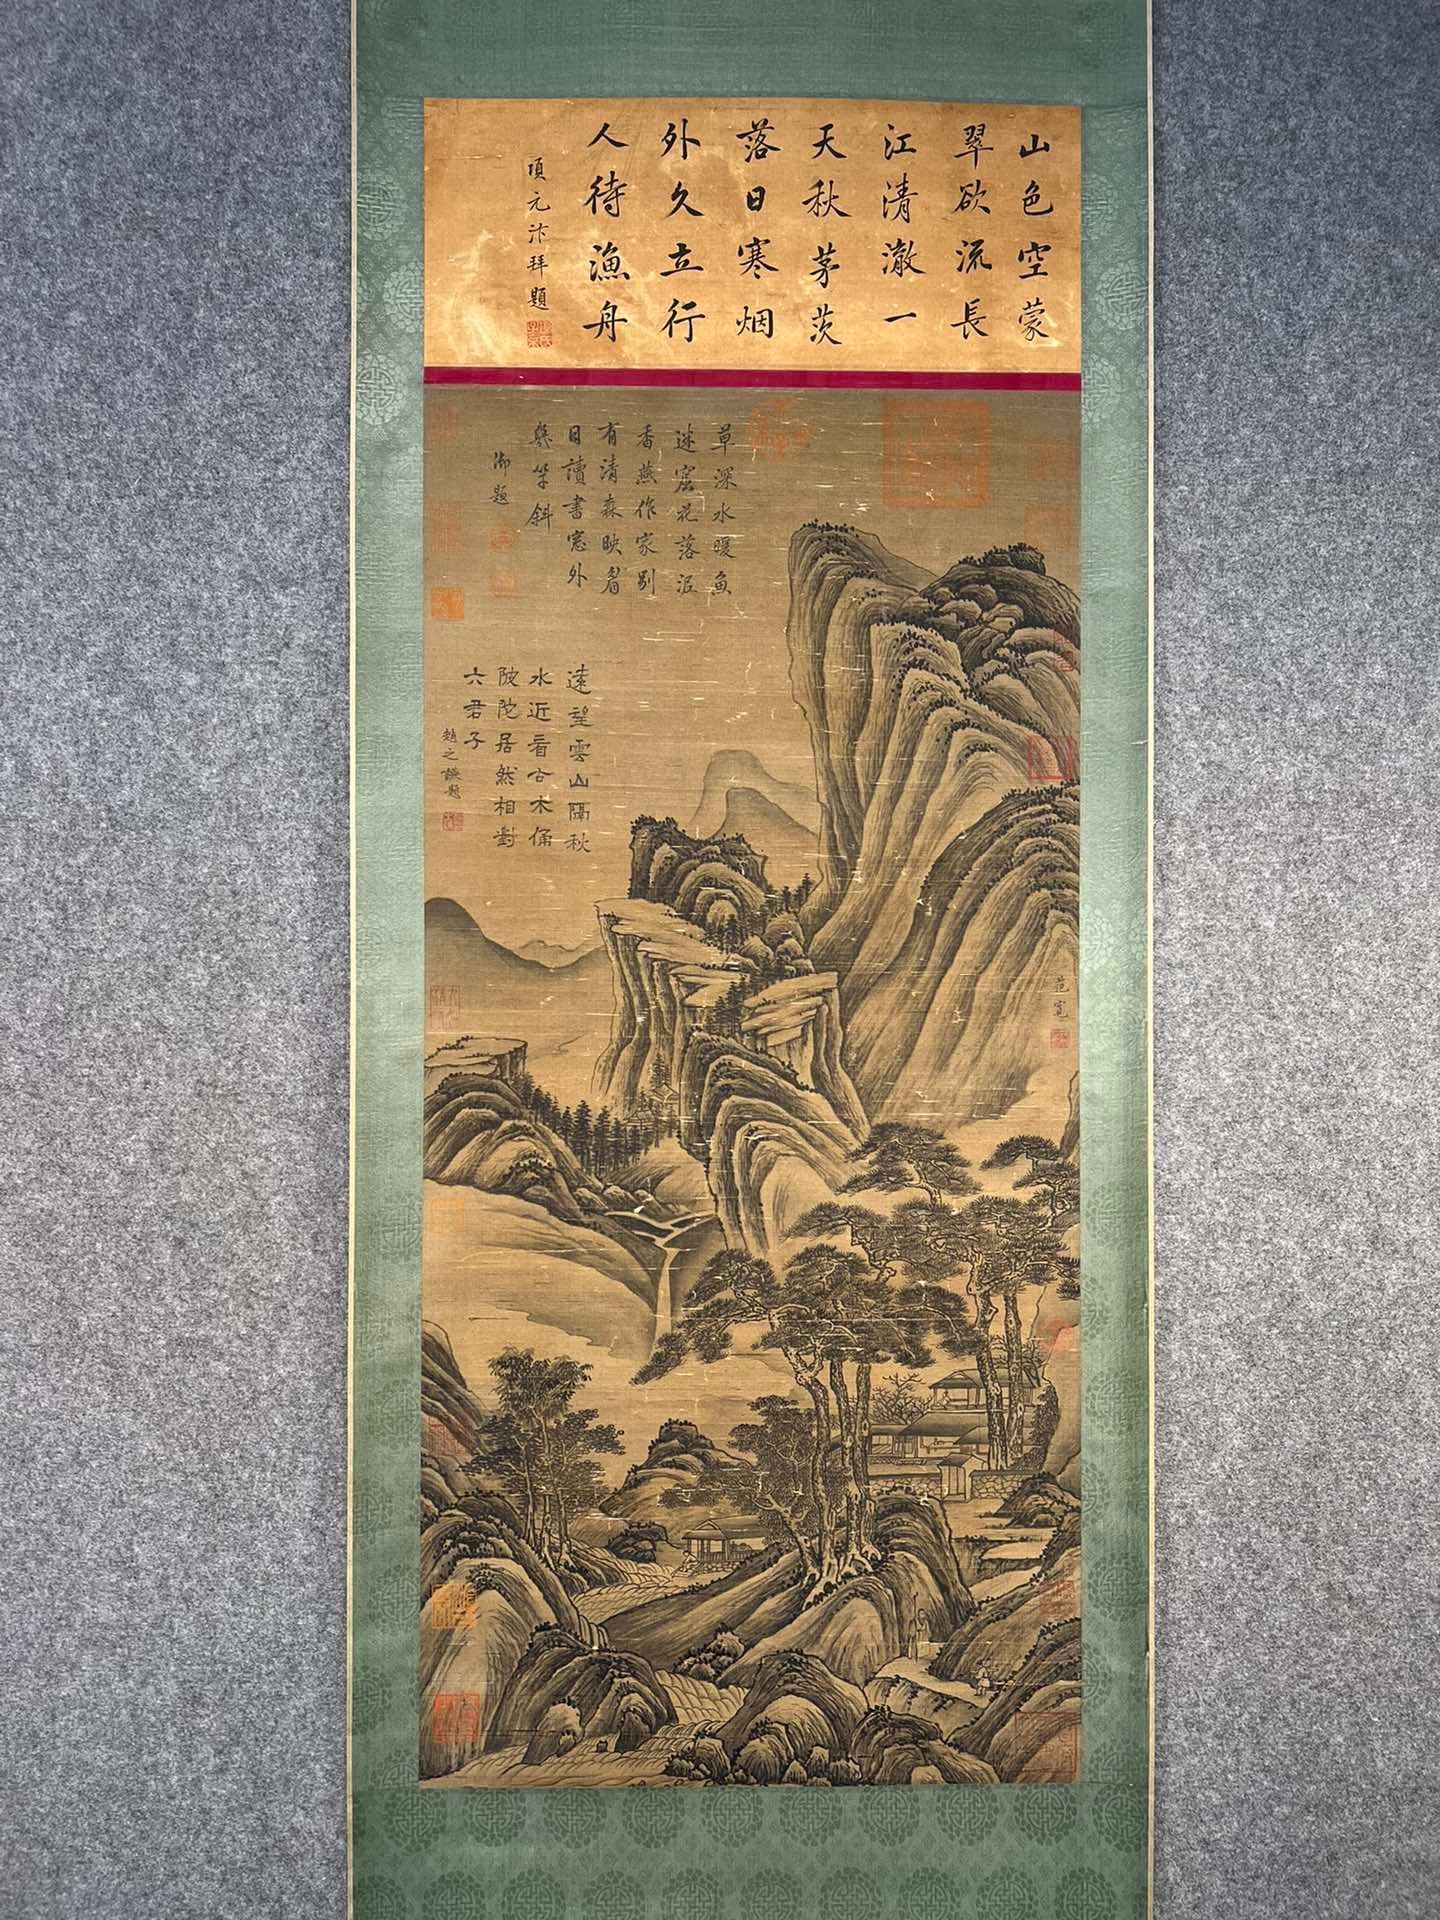 山色空蒙
翠欲流長
江清澈一
天秋茅茨
落日寒烟
外久立行
人待漁舟
項元汴拜題
草深水暖魚
迷窟花落泥
香燕作家別
有清森映眉
目讀書窓外
幾竿斜
御題
遠望雲山隔秋
水近看古木俑
陂陀居然相對
六君子
趙之謙題
范寬